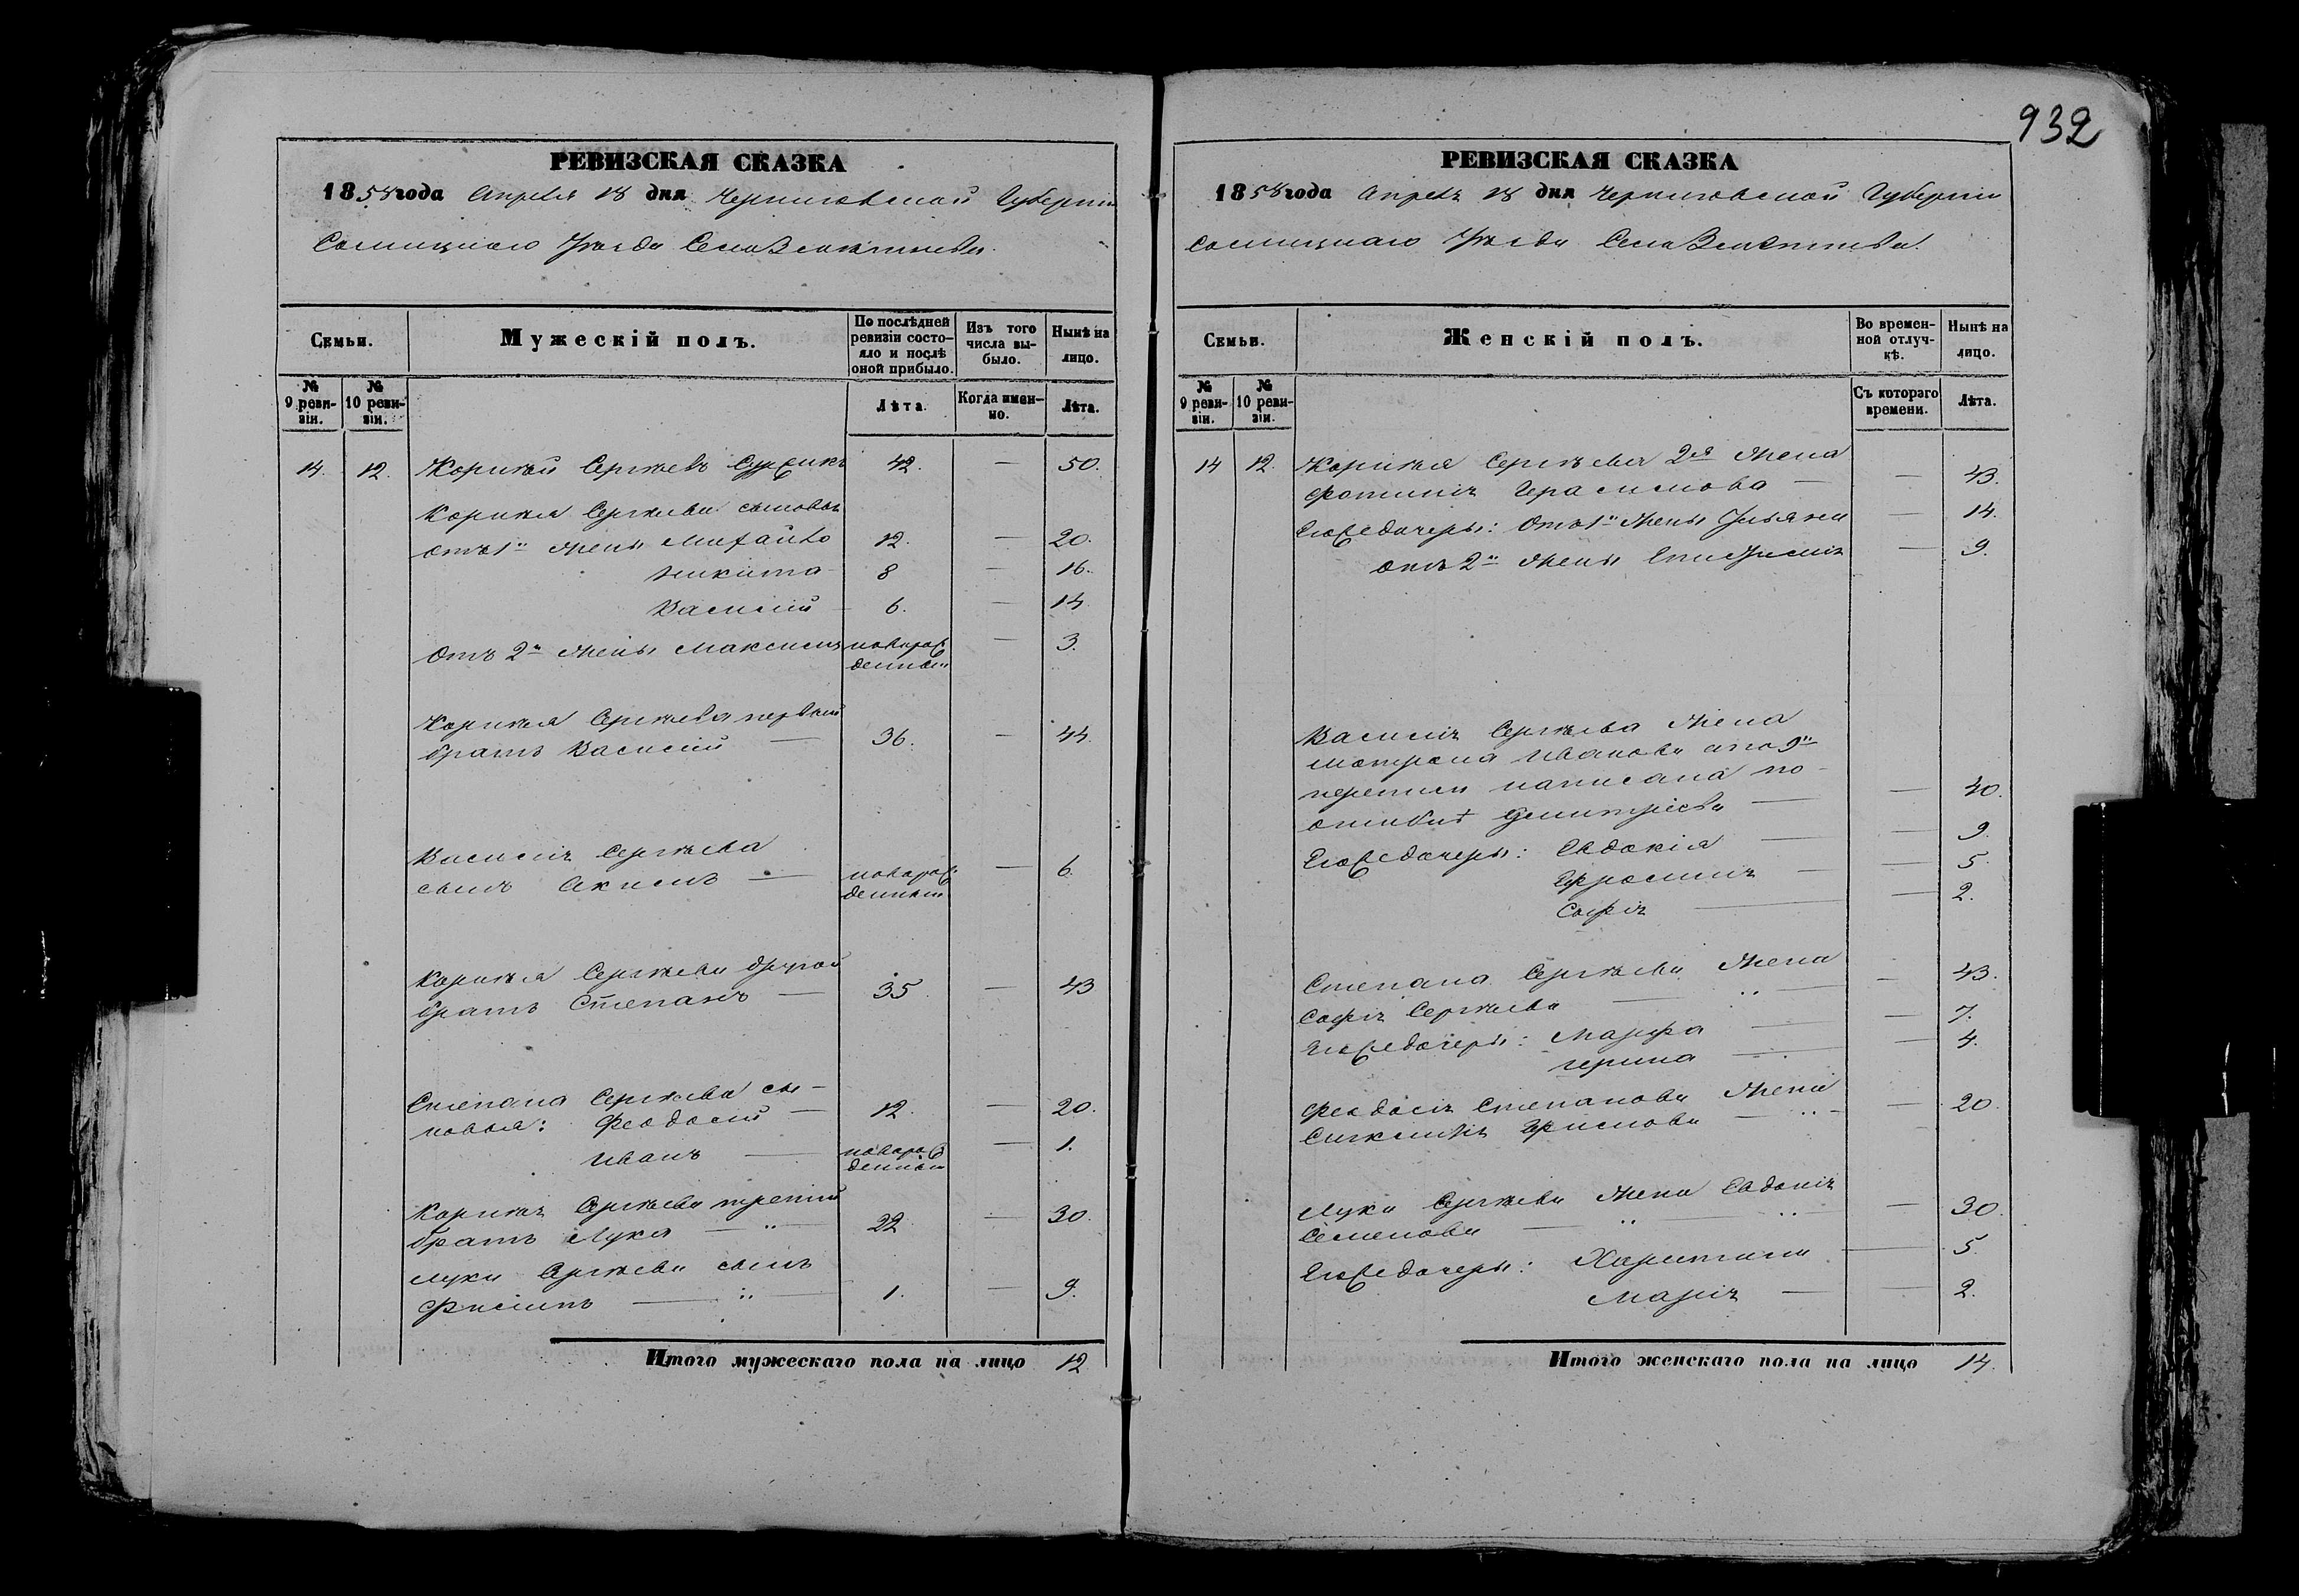 932
РЕВИЗСКАЯ СКАЗКА
1858 года Апреля 18 дня Черниговской Губерніи
Сосницкаго Уѣзда Села
Семьи.
Мужескій полъ.
По послѣдней ревизіи состояло и послѣ оной прибыло.
Изъ того числа выбыло.
Нынѣ на лицо.
№ 9 ревизіи.
№ 10 ревизіи.
Лѣта.
Когда именно.
Лѣта.
14. 12. Корнѣй Сергѣевъ 42. — 50.
Корнѣя Сергѣева сыновья
отъ 1й жены Михайло 12. — 20.
Никита 8 — 16.
Василій 6. — 14.
Отъ 2й жены Максимъ новорож- — 3.
денный
Корнѣя Сергѣева первый
братъ Василій — 36. — 44.
Василія Сергѣева
сынъ Акимъ — новорож- — 6.
денный
Корнѣя Сергѣева другой
братъ Степанъ — 35. — 43
Степана Сергѣева сы-
новья: Феодосій — 12. — 20.
Иванъ — новорож- — 1.
денный
Корнѣя Сергѣева третій
братъ Лука — 22 — 30.
Луки Сергѣева сынъ
Филипъ — 1. — 9.
Итого мужескаго пола на лицо 12
РЕВИЗСКАЯ СКАЗКА
1858 года Апреля 18 дня Черниговской Губерніи
Сосницкаго Уѣзда Села
Семьи.
Женскій полъ.
Во временной отлучкѣ.
Нынѣ на лицо.
№ 9 ревизіи.
№ 10 ревизіи.
Съ котораго времени.
Лѣта.
14 12. Корнѣя Сергѣева 2я жена
Фотинія Герасимова — — 43.
Его же дочери: Отъ 1й жены Ульяна — 14.
отъ 2й жены — 9.
Василія Сергѣева жена
Мотрона Иванова а по 9й
переписи написана по
ошибкѣ Димитріева — — 40.
Его же дочери: Евдокія — — 9.
Ефросинія — — 5.
Софія — — 2.
Степана Сергѣева жена
Софія Сергѣева — — 43.
Его же дочери: Марфа — — 7.
Ирина — — 4.
Феодосія Степанова жена
— — 20.
Луки Сергѣева жена Евдокія
Семенова — — 30.
Его же дочери: Харитина — 5.
Марія — — 2.
Итого женскаго пола на лицо 14.